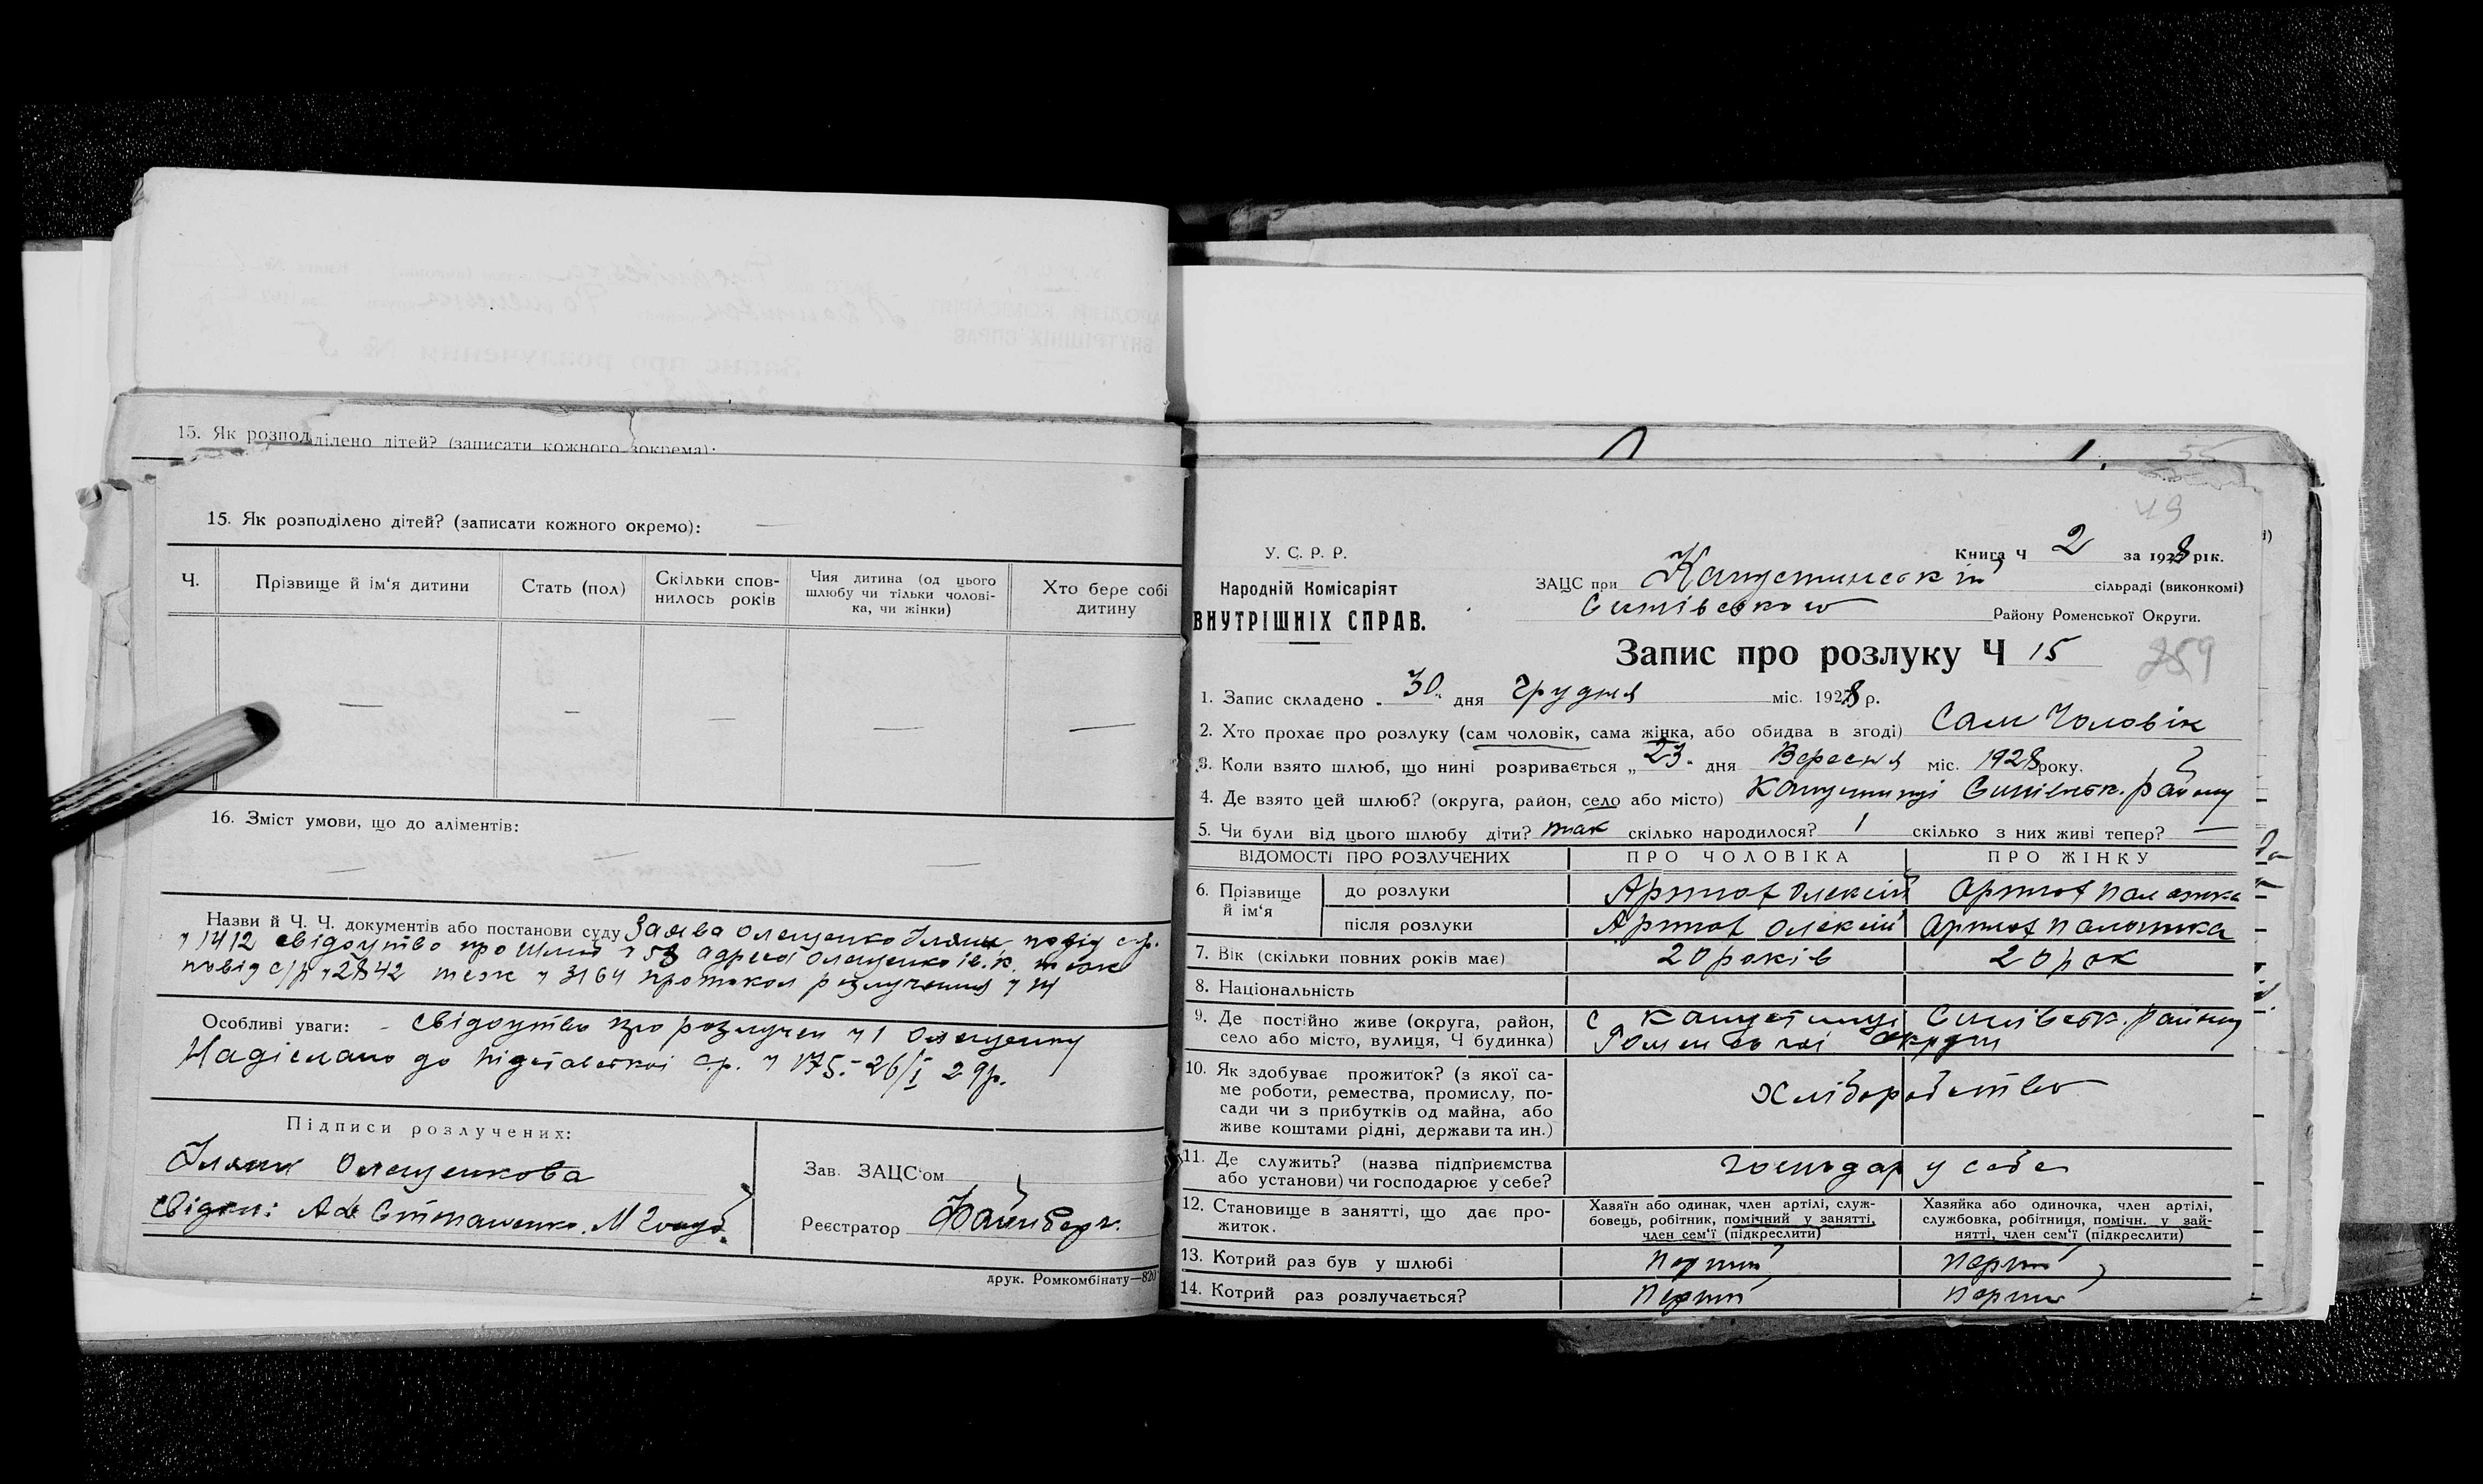 15. Як розподілено дітей? (записати кожного зокрема):
15. Як розподілено дітей? (записати кожного окремо): —
Ч. Прізвище й ім'я дитини Стать (пол) Скільки спов-нилось років Чия дитина (од цього шлюбу чи тільки чолові-ка, чи жінки) Хто бере собі дитину
— — — — —
16. Зміст умови, що до аліментів:
— — —
Назви й Ч. Ч. документів або постанови суду Заява Олещенко
ч 1412 свідоцтво про шлюб ч 58 адреса Олещенко
повід с/р ч 2842 теж ч 3164 протокол розлучення ч
Особливі уваги: - свідоцтво про розлучен ч 1 Олещенку
Надіслано до Підставської с.р. ч 175.- 26/I 29р.
Підписи розлучених:
Олещенкова
Зав. ЗАЦС'ом
свідки:
Реєстратор Файнберг.
друк. Ромкомбінату—820
49
У. С. Р. Р.
Народній Комісаріят
ВНУТРІШНІХ СПРАВ.
Книга Ч 2 за 1928 рік.
ЗАЦС при Капустинській сільраді (виконкомі)
Синівського Району Роменської Округи.
Запис про розлуку Ч 15
259
1. Запис складено „ 30 " дня грудня міс. 1928 р.
2. Хто прохає про розлуку (сам чоловік, сама жінка, або обидва в згоді) Сам Чоловік
3. Коли взято шлюб, що нині розривається „ 23 " дня Вересня міс. 1928 року.
4. Де взято цей шлюб? (округа, район, село або місто) Капустинці Синівськ. району
5. Чи були від цього шлюбу діти? так скілько народилося? 1 скілько з них живі тепер? —
ВІДОМОСТІ ПРО РОЗЛУЧЕНИХ ПРО ЧОЛОВІКА ПРО ЖІНКУ
6. Прізвище й ім'я до розлуки Олексій Палажка
після розлуки Олексій Палажка
7. Вік (скільки повних років має) 20 років 20 рок
8. Національність
9. Де постійно живе (округа, район, с Капустинці Синівськ. району
село або місто, вулиця, Ч будинка) Роменської округи
10. Як здобуває прожиток? (з якої са-
ме роботи, ремества, промислу, по-
сади чи з прибутків од майна, або
живе коштами рідні, держави та ин.) Хліборобство
11. Де служить? (назва підприємства
або установи) чи господарює у себе? господар у себе
12. Становище в занятті, що дає про-
житок.
Хазяїн або одинак, член артілі, служ-
бовець, робітник, помічний у занятті,
член сем'ї (підкреслити)
Хазяйка або одиночка, член артілі,
службовка, робітниця, помічн. у зай-
нятті, член сем'ї (підкреслити)
13. Котрий раз був у шлюбі Перший Перший
14. Котрий раз розлучається? Перший Перший